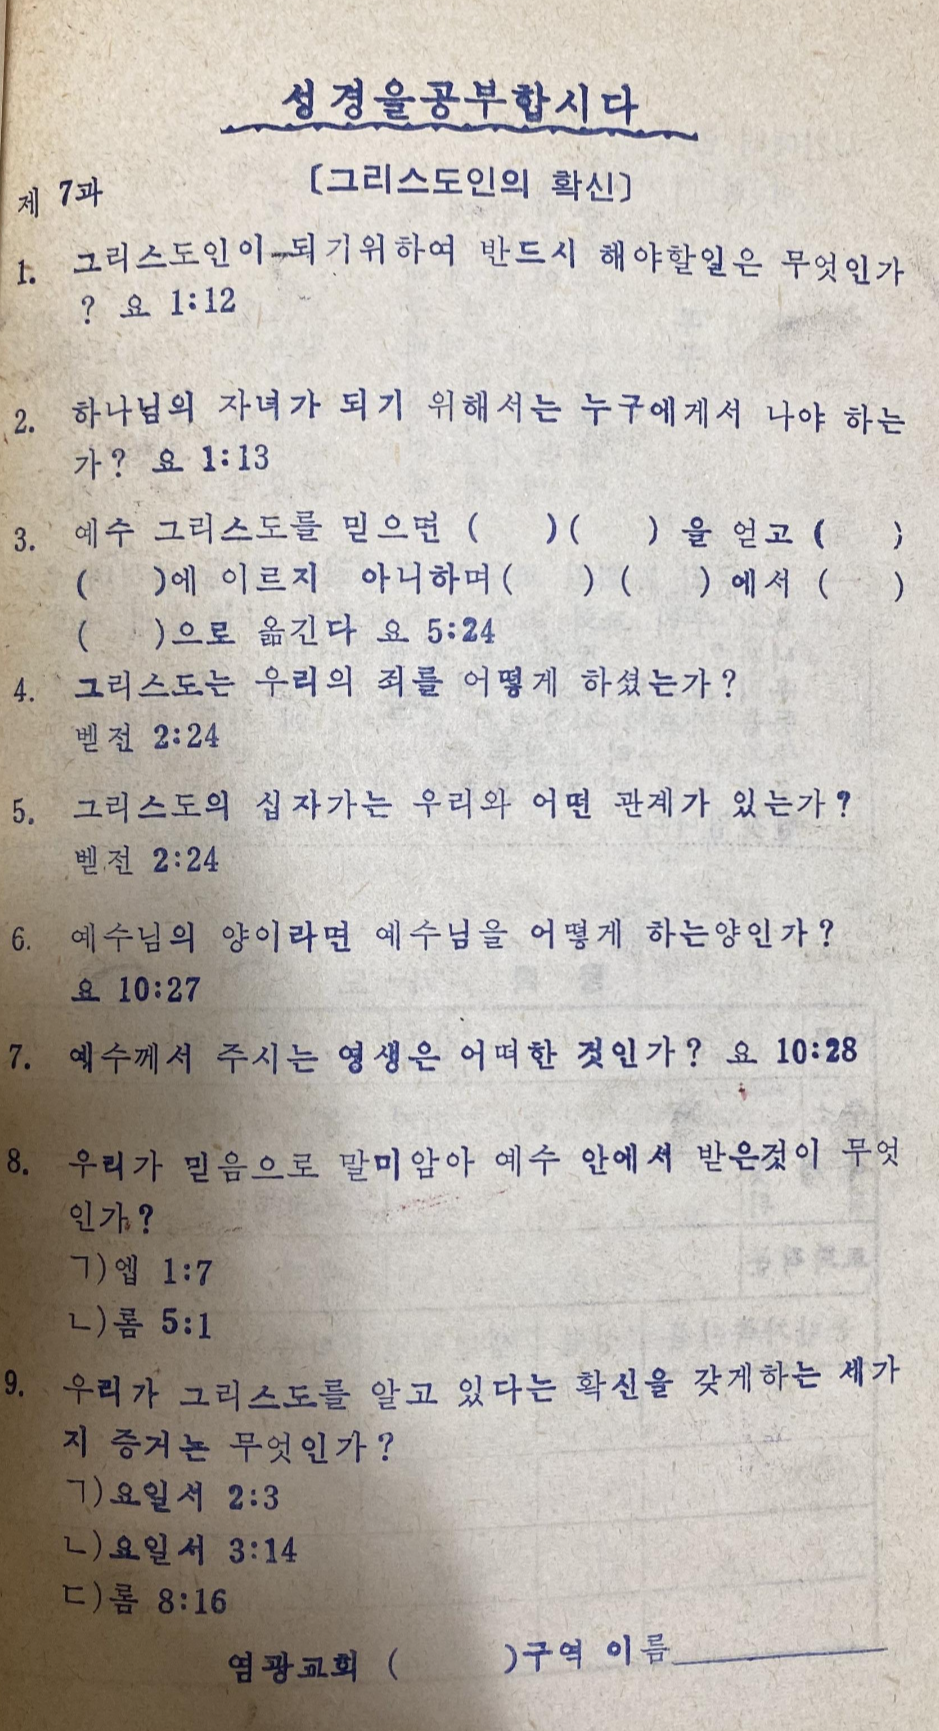 성경을공부합시다
[그리스도인의 확신]
제 7과
1. 그리스도인이 되기위하여 반드시 해야할일은 무엇인가
? 요 1:12
2. 하나님의 자녀가 되기 위해서는 누구에게서 나야 하는
가? 요 1:13
3. 예수 그리스도를 믿으면 ( )( ) 을 얻고 ( )
( )에 이르지 아니하며( ) ( ) 에서 ( )
( )으로 옮긴다 요 5:24
4. 그리스도는 우리의 죄를 어떻게 하셨는가?
벧전 2:24
5. 그리스도의 십자가는 우리와 어떤 관계가 있는가?
벧전 2:24
6. 예수님의 양이라면 예수님을 어떻게 하는양인가?
요 10:27
7. 예수께서 주시는 영생은 어떠한 것인가? 요 10:28
8. 우리가 믿음으로 말미암아 예수 안에서 받은것이 무엇
인가?
ㄱ)엡 1:7
ㄴ)롬 5:1
9. 우리가 그리스도를 알고 있다는 확신을 갖게하는 세가
지 증거는 무엇인가?
ㄱ)요일서 2:3
ㄴ)요일서 3:14
ㄷ)롬 8:16
염광교회 ( )구역 이름